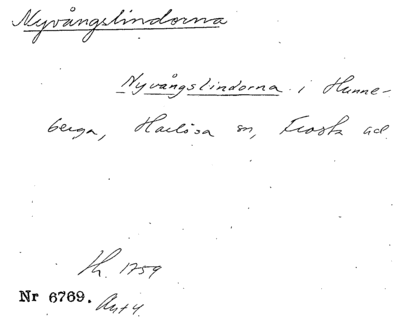 Nyvångslindorna
Nyvångslindorna i Hunne-
berga, Harlösa sn, Frosta hd
Th. 1759
Nr 6769.
Ant 4.